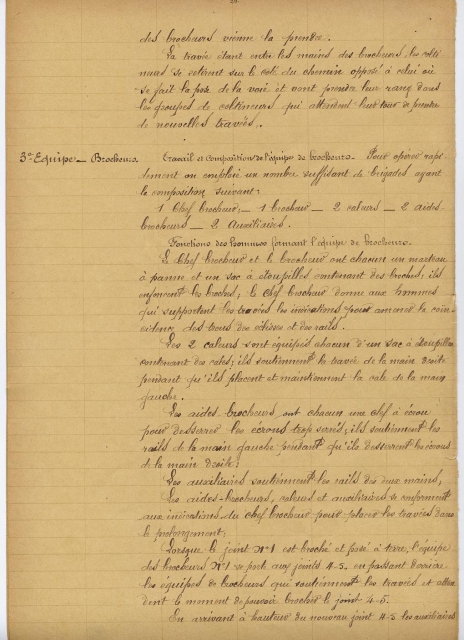 des brocheurs vienne la prendre.
La travée étant entre les mains des brocheurs, les colti
neurs se retirent sur le côté du chemin opposé à celui où
se fait la pose de la voie et vont prendre leur rang dans
les groupes de coltineurs qui attendent leur tour de prendre
de nouvelles travées.
3e Equipe - Brocheurs. Travail et compositions de l'équipe de brocheurs - Pour opérer rapi-
dement on emploie un nombre suffisant de brigades ayant
la composition suivante:
1 Chef brocheur, - 1 brocheur - 2 caleurs - 2 aides
brocheurs - 2 Auxiliaires.
Fonctions des hommes formant l'équipe de brocheurs.
Le Chef brocheur et le brocheur ont chacun un marteau
à panne et un sac à étoupilles contenant des broches; ils
enfoncent les broches; le chef brocheur donne aux hommes
qui supportent les travées les indications pour amener la coïn-
cidence des trous des éclisses et des rails.
Les 2 caleurs sont équipés chacun d'un sac à étoupilles
contenant des cales; ils soutiennent la travée de la main droite
pendant qu'ils placent et maintiennent la cale de la main
gauche.
Les aides brocheurs ont chacun une clef à écrou
pour desserrer les écrous trop serrés; ils soutiennent les
rails de la main gauche pendant qu'ils desserrent les écrous
de la main droite.
Les auxiliaires soutiennent les rails des deux mains,
Les aides-brocheurs, caleurs et auxiliaires se conforment
aux indications du chef brocheur pour placer les travées dans
le prolongement.
Lorsque le joint No 1 est broché et posé à terre, l'équipe
des brocheurs No 1 se porte aux joints 4-5 en passant derrière
les équipes de brocheurs qui soutiennent les travées et atten
dent le moment de pouvoir brocher le joint 4-5.
En arrivant à hauteur du nouveau joint 4-5 les auxiliaires